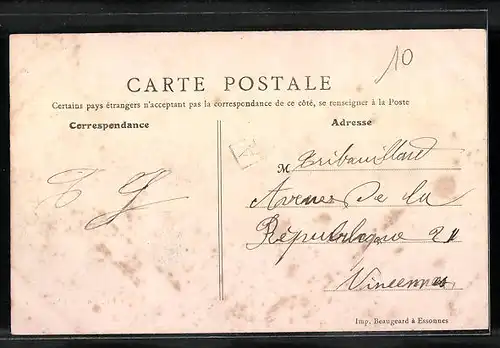 10
CARTE POSTALE
Certains pays étrangers n'acceptant pas la correspondance de ce côté, se renseigner à la Poste
Correspondance
Adresse
M Tribouillard
Avenue de la
République 21
Vincennes
Imp. Beaugeard à Essonnes